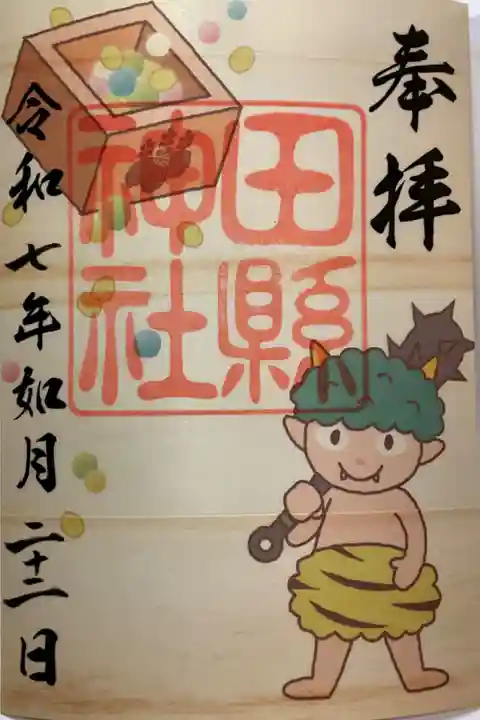 奉拝
田縣
神社
令和七年如月二十二日